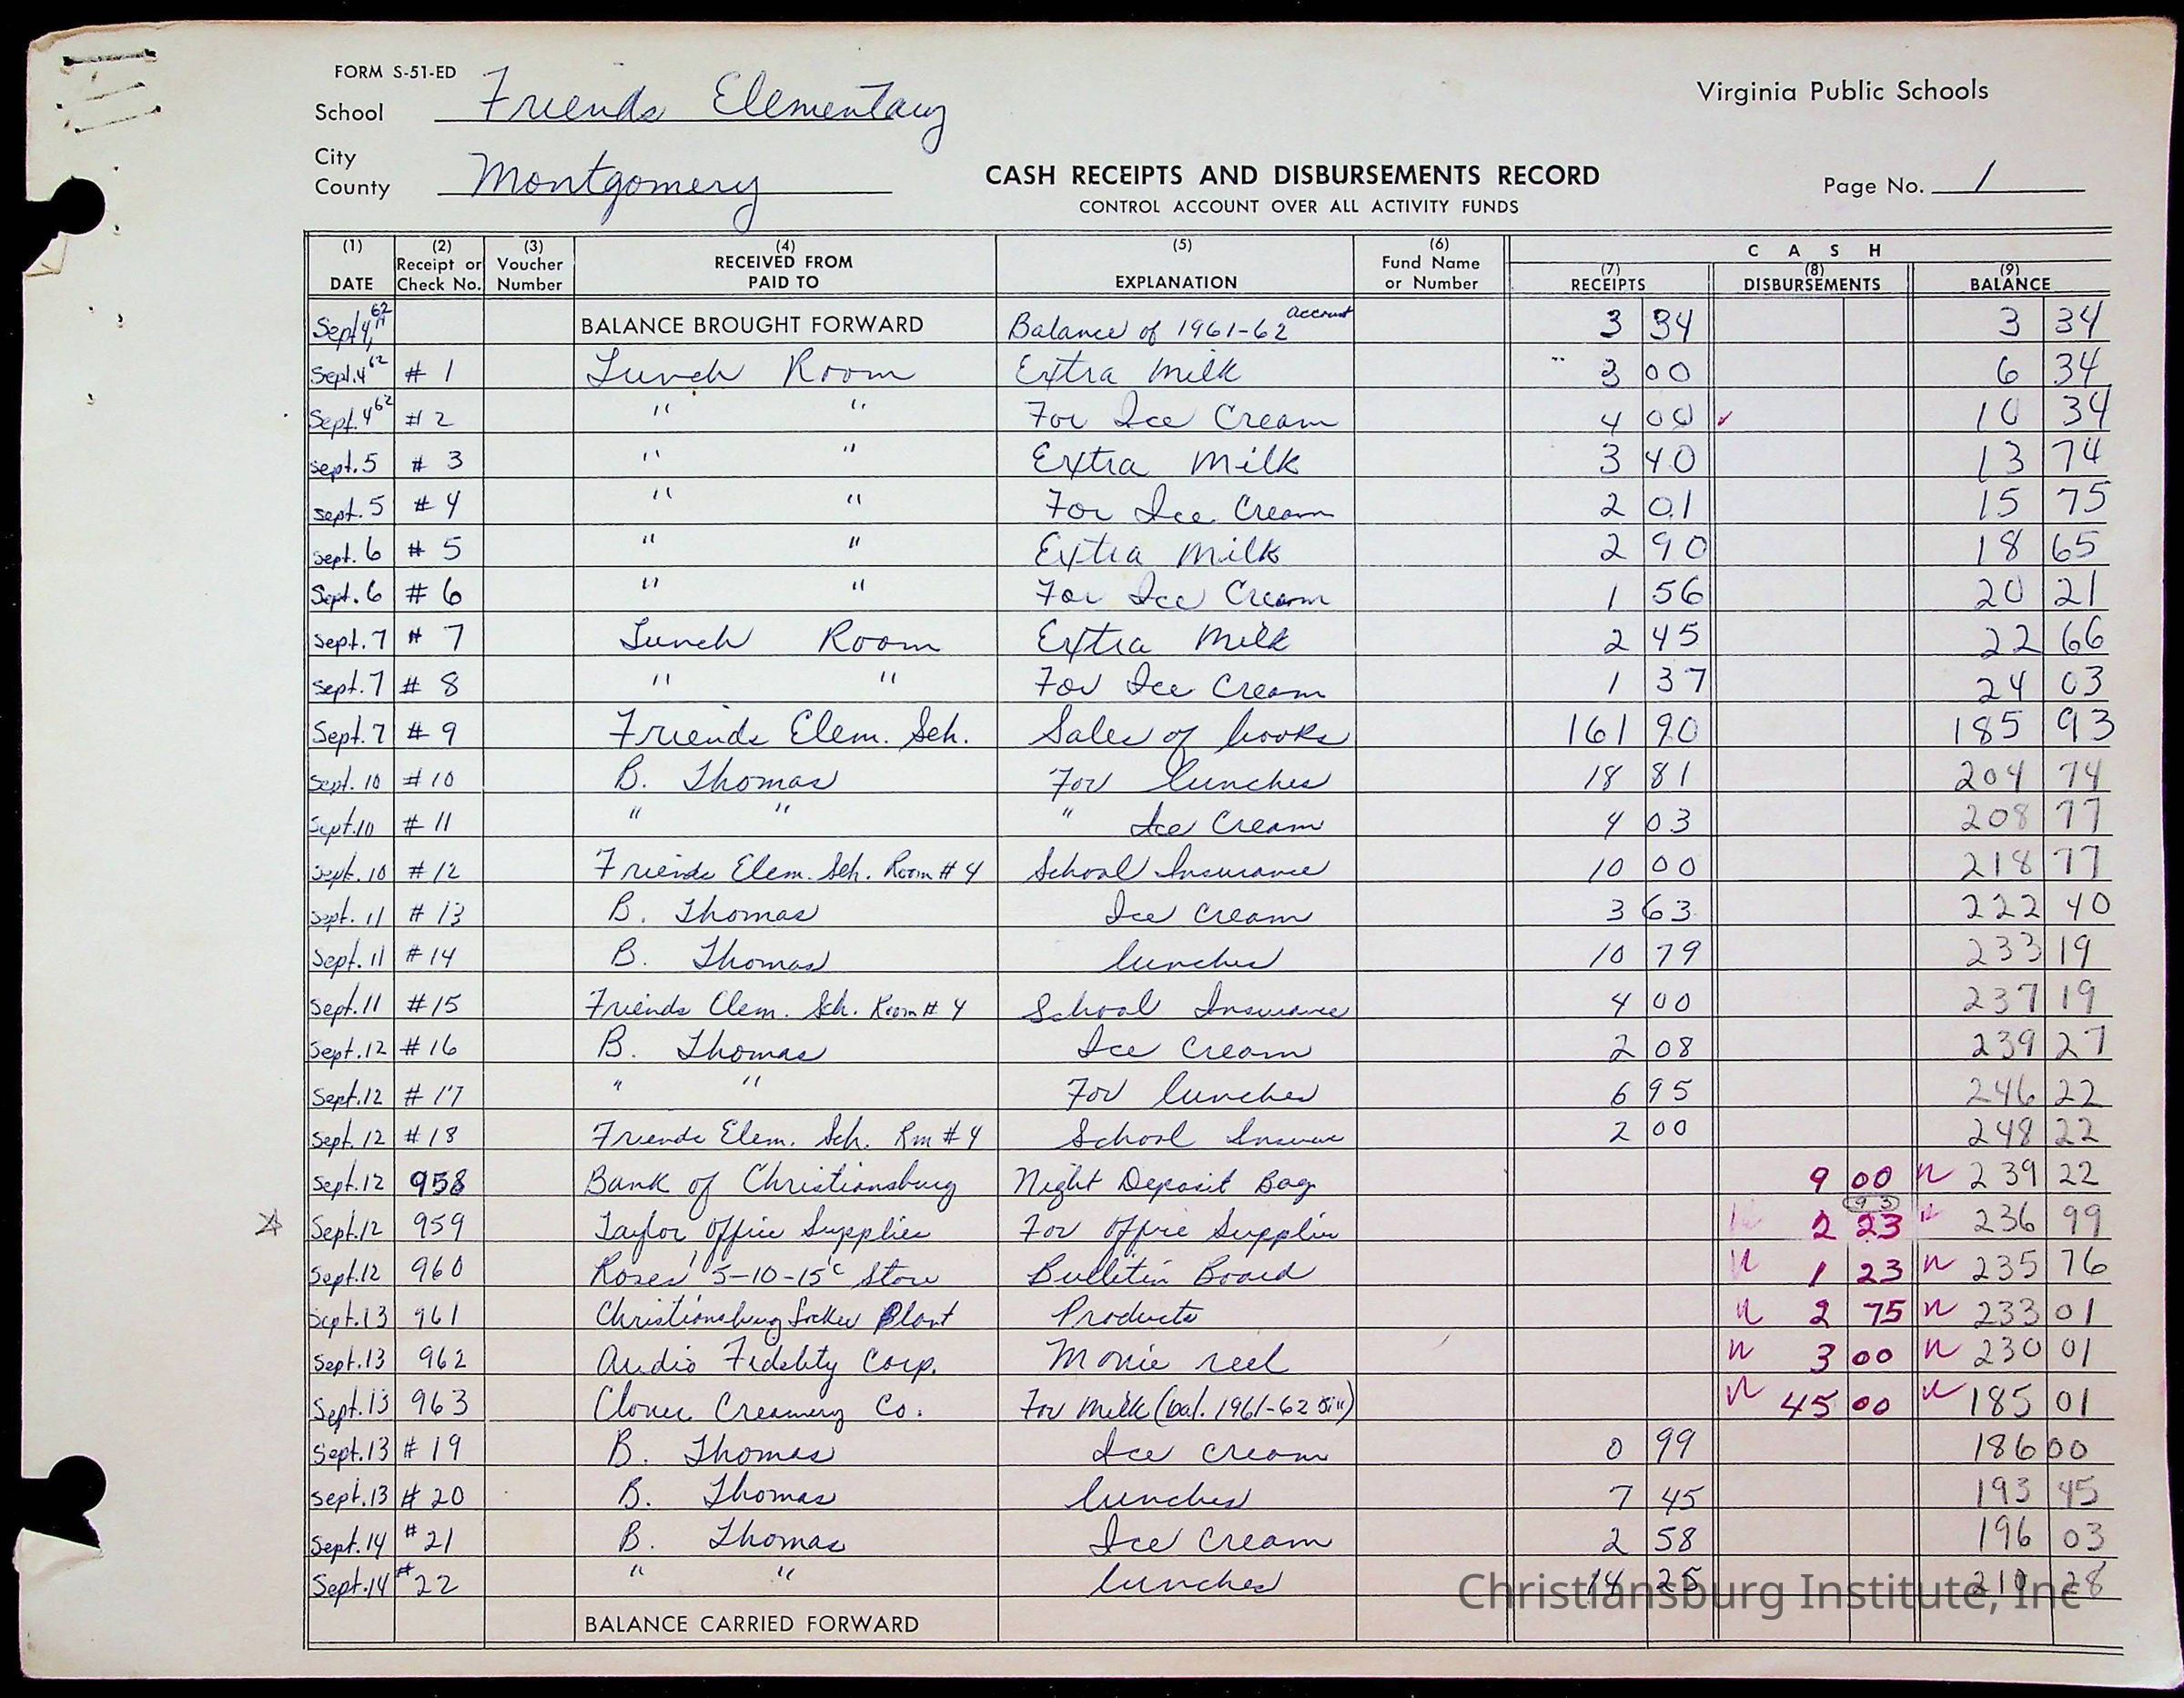 FORM S-51-ED
Virginia Public Schools
School Friends Elementary
City
County Montgomery
CASH RECEIPTS AND DISBURSEMENTS RECORD
Page No. 1
CONTROL ACCOUNT OVER ALL ACTIVITY FUNDS
(1) (2) (3) (4) (5) (6) C A S H
DATE Receipt or Check No. Voucher Number RECEIVED FROM PAID TO EXPLANATION Fund Name or Number (7) RECEIPTS (8) DISBURSEMENTS (9) BALANCE
Sept 4, 62 BALANCE BROUGHT FORWARD Balance of 1961-62 account 3 34 3 34
Sept. 4 62 # 1 Lunch Room Extra Milk 3 00 6 34
Sept. 4 62 # 2 " " For Ice Cream 4 00 10 34
Sept. 5 # 3 " " Extra Milk 3 40 13 74
Sept. 5 # 4 " " For Ice Cream 2 01 15 75
Sept. 6 # 5 " " Extra Milk 2 90 18 65
Sept. 6 # 6 " " For Ice Cream 1 56 20 21
Sept. 7 # 7 Lunch Room Extra Milk 2 45 22 66
Sept. 7 # 8 " " For Ice Cream 1 37 24 03
Sept. 7 # 9 Friends Elem. Sch. Sales of books 161 90 185 93
Sept. 10 # 10 B. Thomas For lunches 18 81 204 74
Sept. 10 # 11 " " " Ice Cream 4 03 208 77
Sept. 10 # 12 Friends Elem. Sch. Room # 4 School Insurance 10 00 218 77
Sept. 11 # 13 B. Thomas Ice Cream 3 63 222 40
Sept. 11 # 14 B. Thomas lunches 10 79 233 19
Sept. 11 # 15 Friends Elem. Sch. Room # 4 School Insurance 4 00 237 19
Sept. 12 # 16 B. Thomas Ice Cream 2 08 239 27
Sept. 12 # 17 " " For lunches 6 95 246 22
Sept. 12 # 18 Friends Elem. Sch. Rm # 4 School Insurance 2 00 248 22
Sept. 12 958 Bank of Christiansburg Night Deposit Bag 9 00 239 22
Sept. 12 959 Taylor Office Supplies For Office Supplies 2 23 (93) 236 99
Sept. 12 960 Roses' 5-10-15¢ Store Bulletin Board 1 23 235 76
Sept. 13 961 Christiansburg Locker Plant Products 2 75 233 01
Sept. 13 962 Audio Fidelity Corp. Movie reel 3 00 230 01
Sept. 13 963 Clover Creamery Co. For Milk (bal. 1961-62 Bill) 45 00 185 01
Sept. 13 # 19 B. Thomas Ice Cream 0 99 186 00
Sept. 13 # 20 B. Thomas lunches 7 45 193 45
Sept. 14 # 21 B. Thomas Ice Cream 2 58 196 03
Sept. 14 # 22 " " lunches 14 25 210 28
Christiansburg Institute, Inc
BALANCE CARRIED FORWARD